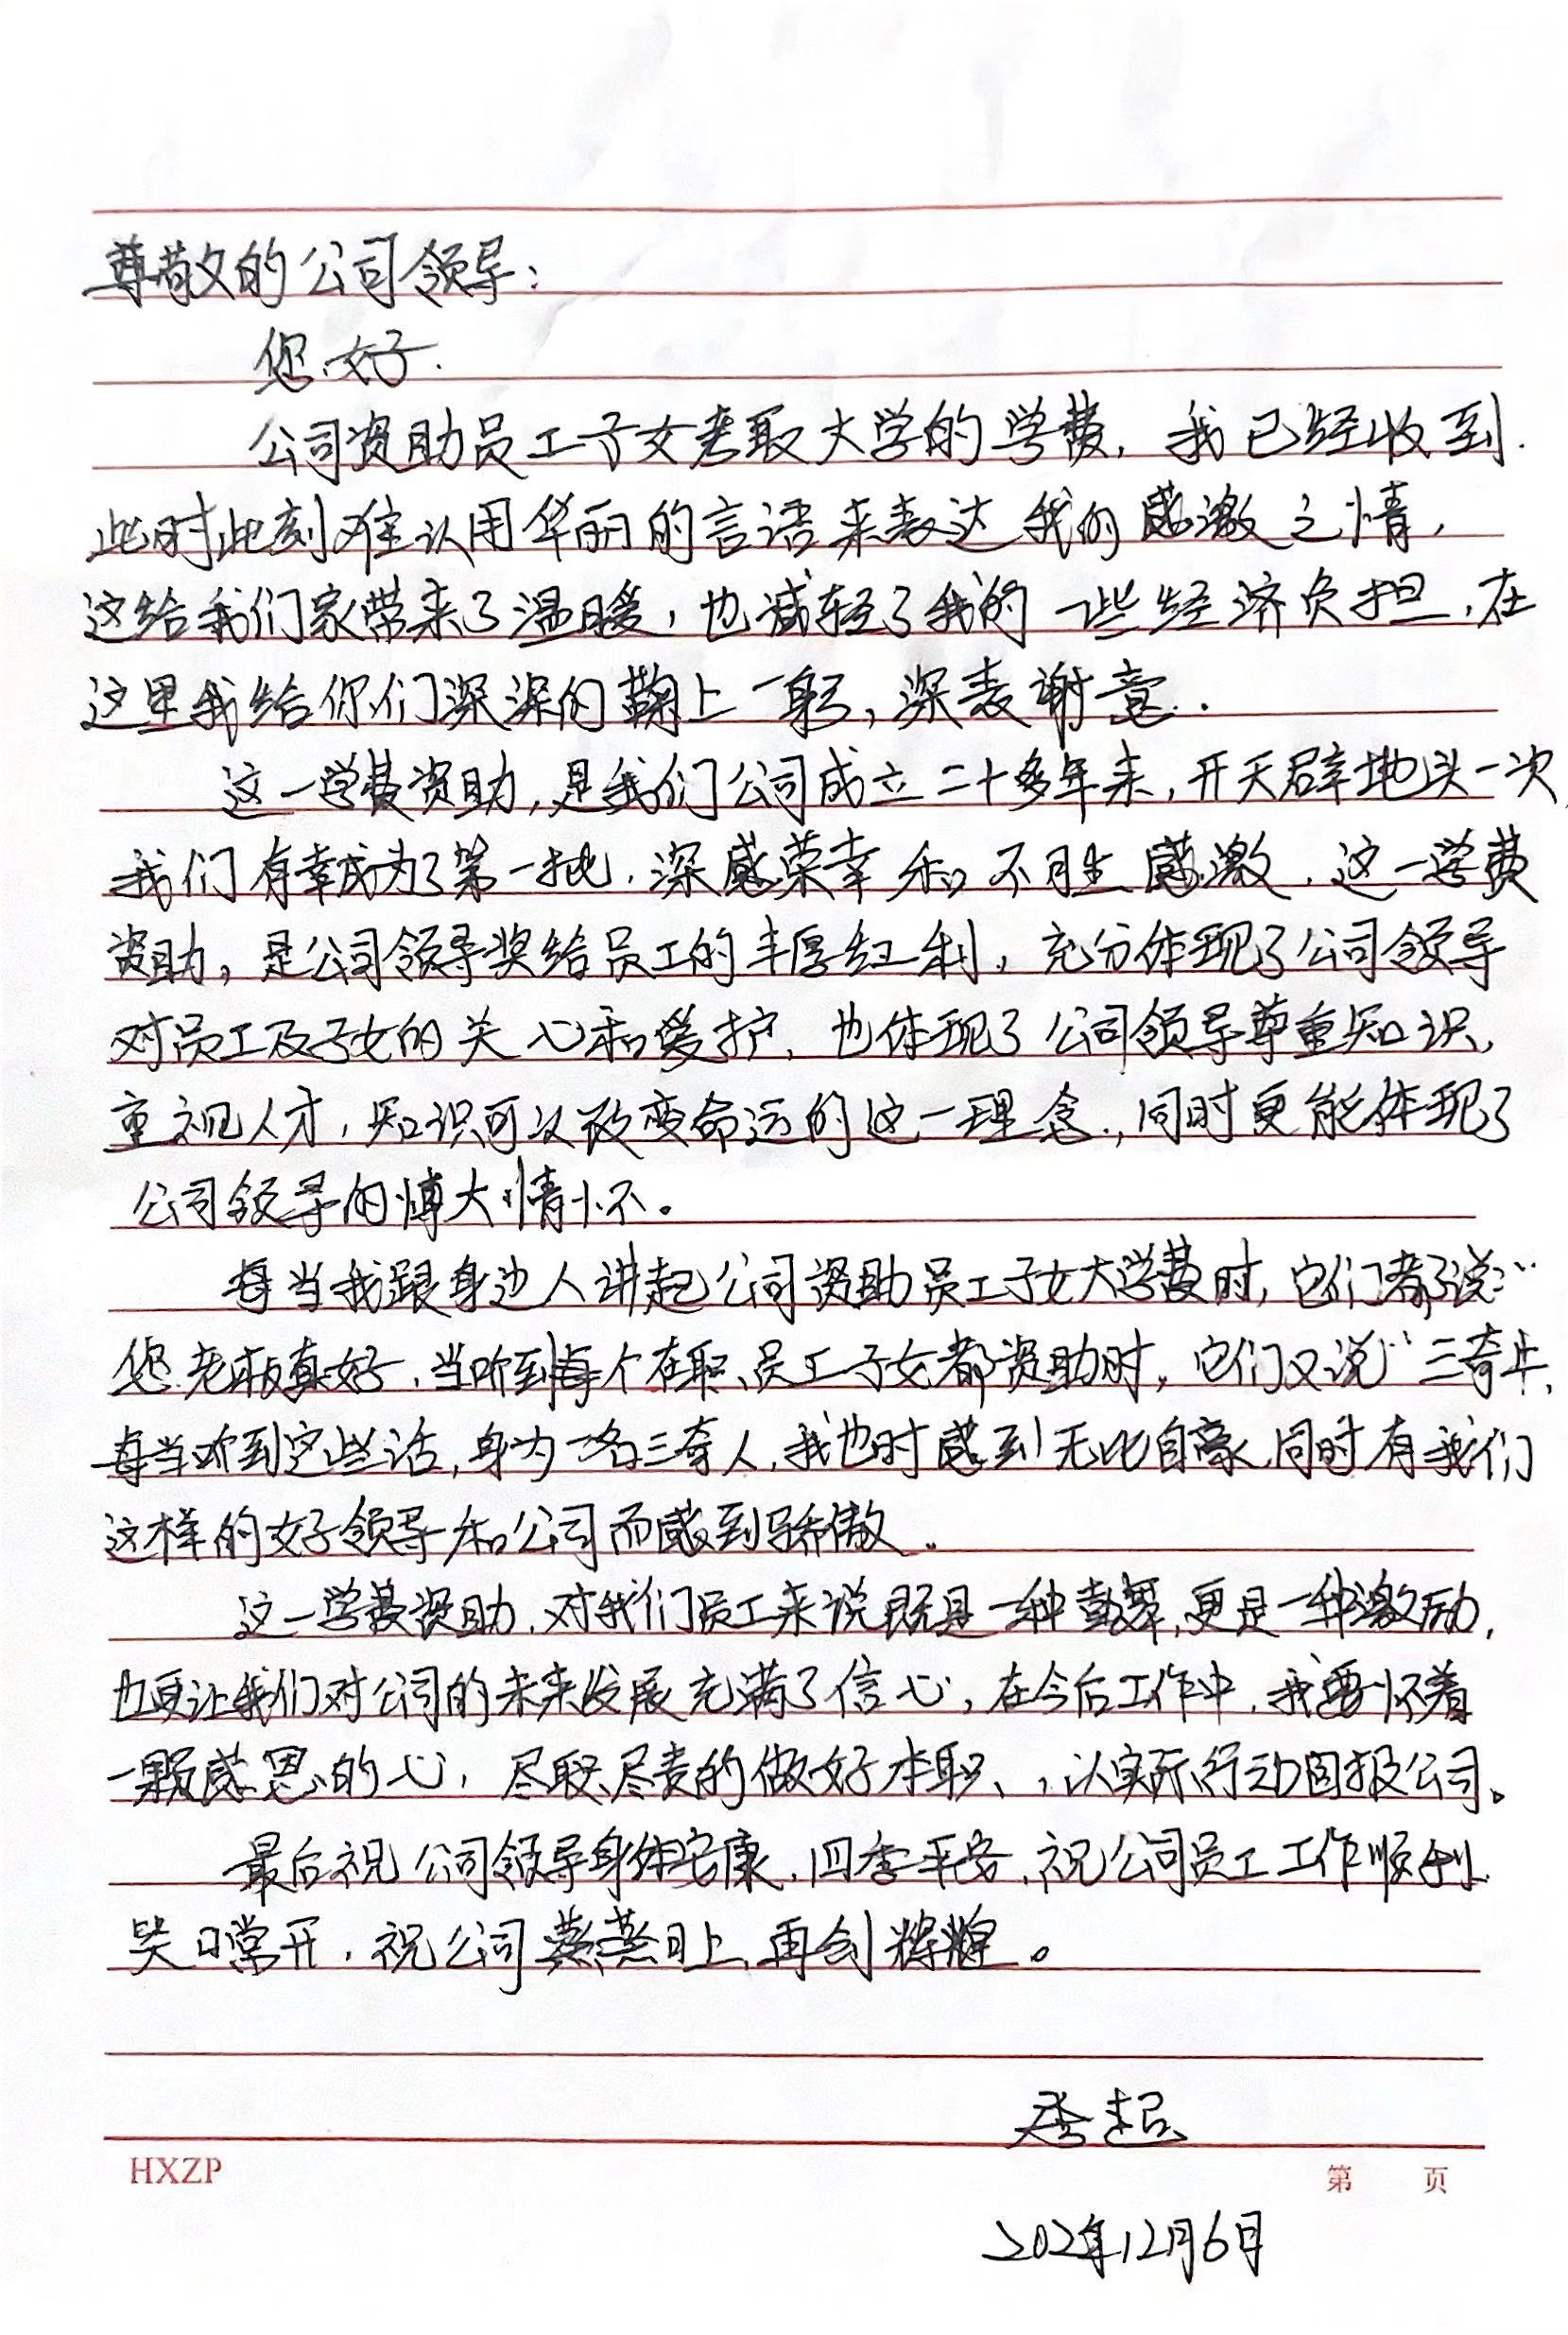 尊敬的公司领导:
您好.
公司资助员工子女考取大学的学费,我已经收到.
此时此刻难以用华丽的言语来表达我的感激之情,
这给我们家带来了温暖,也减轻了我的一些经济负担,在
这里我给你们深深的鞠上一躬,深表谢意.
这一学费资助,是我们公司成立二十多年来,开天辟地头一次,
我们有幸成为了第一批,深感荣幸和不胜感激,这一学费
资助,是公司领导奖给员工的丰厚红利,充分体现了公司领导
对员工及子女的关心和爱护,也体现了公司领导尊重知识,
重视人才,知识可以改变命运的这一理念,同时更能体现了
公司领导的博大情怀。
每当我跟身边人讲起公司资助员工子女大学费时,它们都说:“
您老板真好,当听到每个在职员工子女都资助时,它们又说“三奇牛,
每当听到这些话,身为一名三奇人,我也时感到无比自豪,同时有我们
这样的好领导和公司而感到骄傲。
这一学费资助,对我们员工来说既是一种鼓舞,更是一种激励,
也更让我们对公司的未来发展充满了信心,在今后工作中,我要怀着
一颗感恩的心,尽职尽责的做好本职,以实际行动回报公司。
最后祝公司领导身体安康,四季平安,祝公司员工工作顺利,
笑口常开,祝公司蒸蒸日上,再创辉煌。
超
HXZP 第 页
202年12月6日